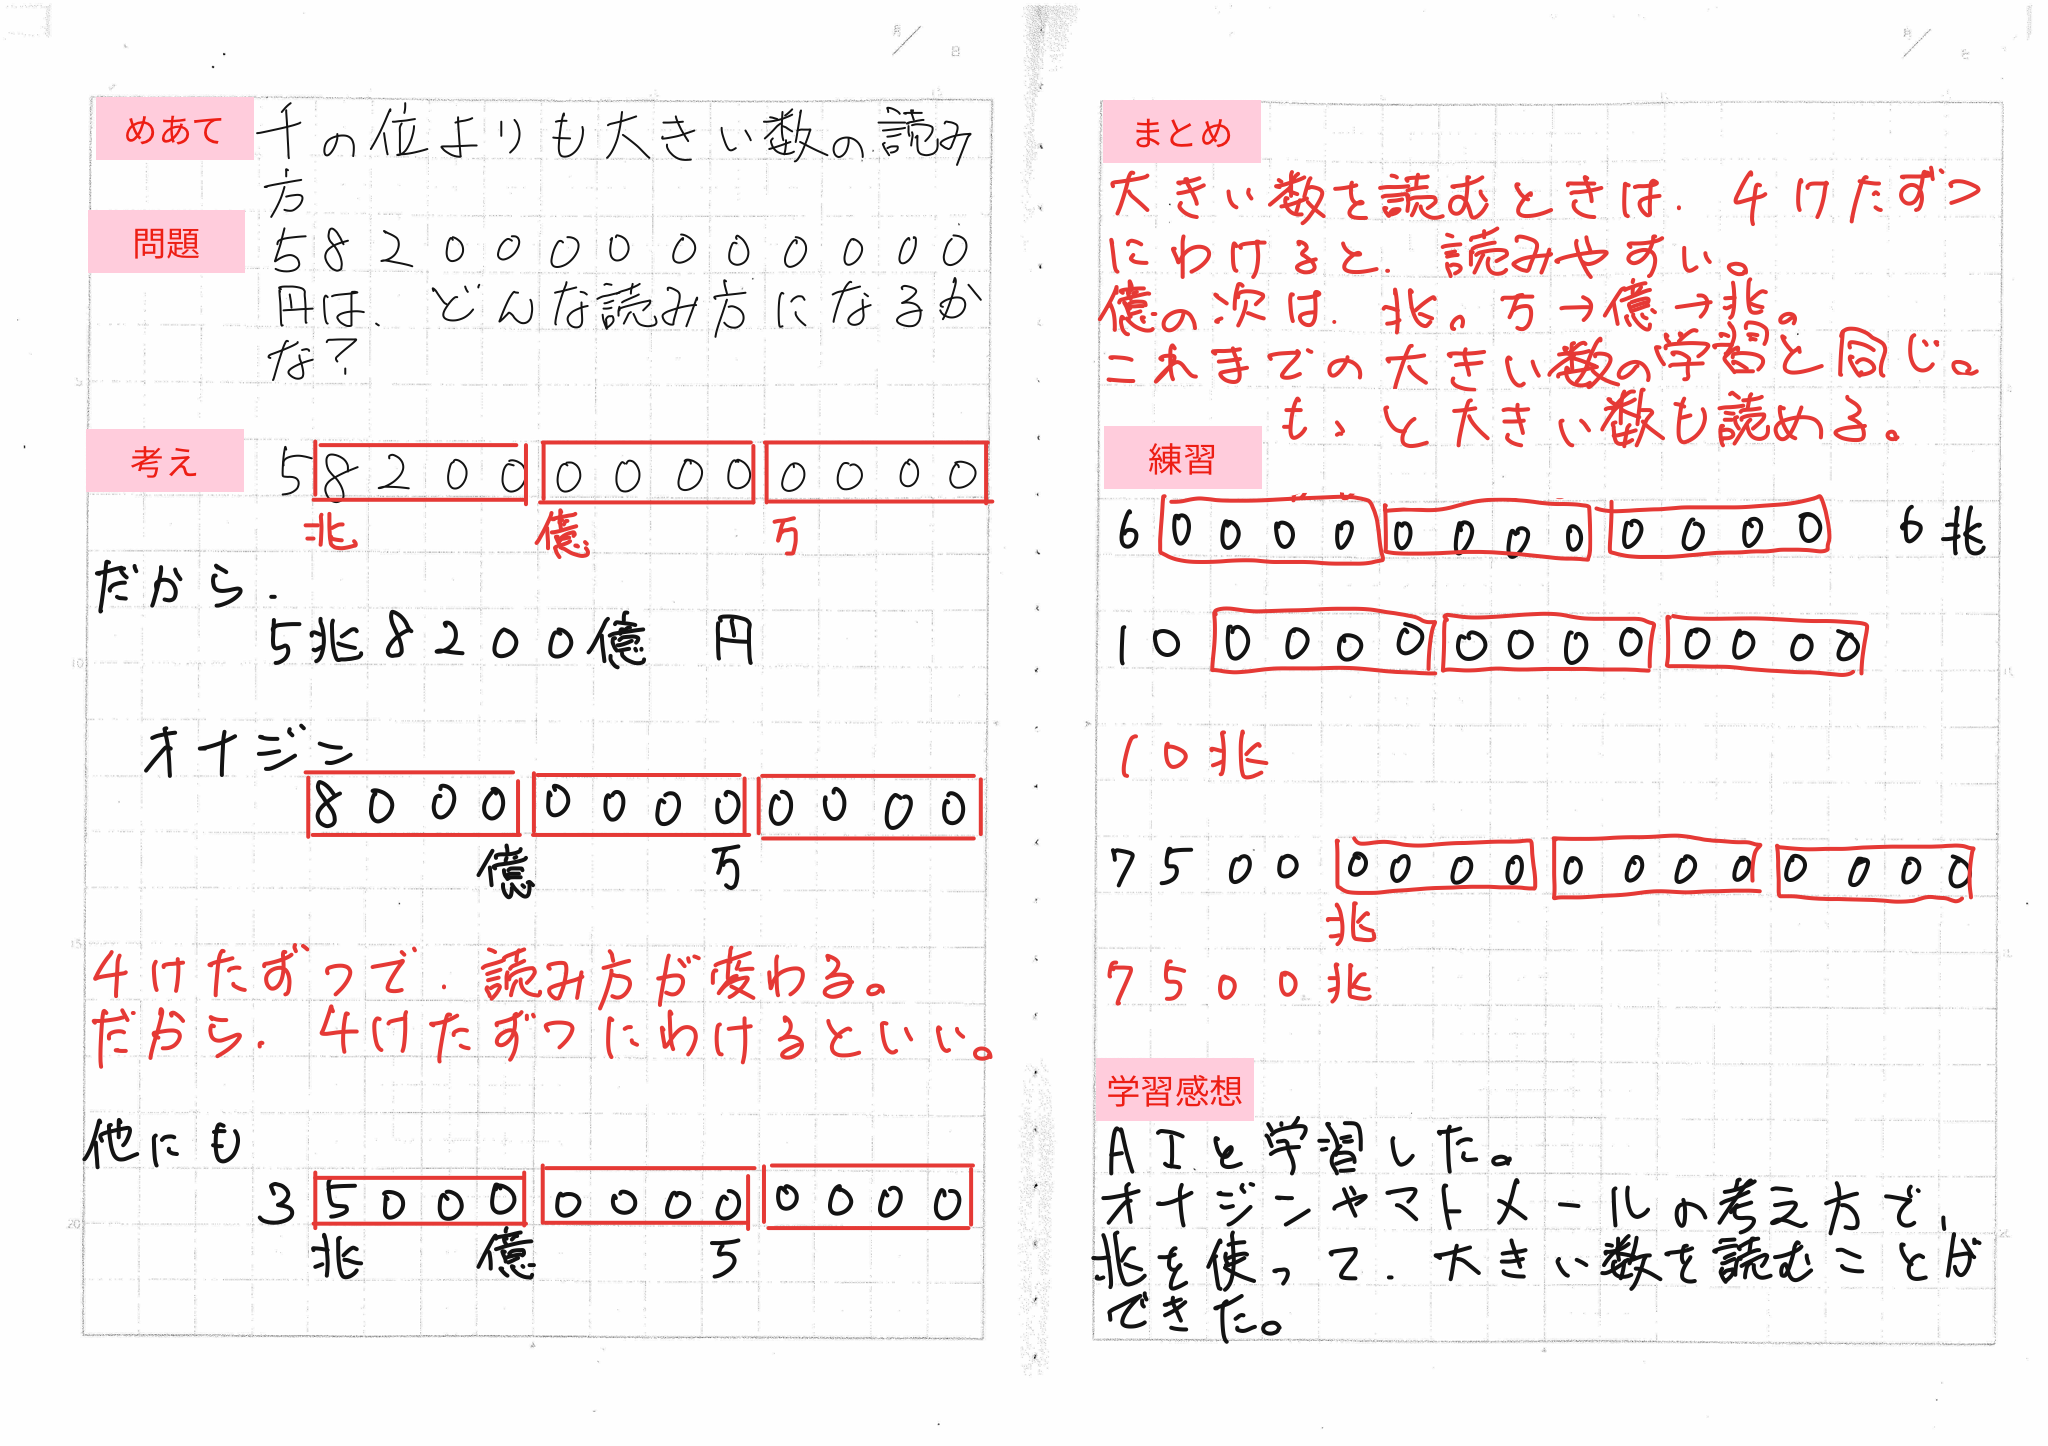 月/日
めあて 千の位よりも大きい数の読み
方
問題 5820000000000
円は、どんな読み方になるか
な?
考え 5820000000000
兆 億 万
だから、
5兆8200億 円
オナジン
800000000000
億 万
4けたずつで、読み方が変わる。
だから、4けたずつにわけるといい。
他にも
3500000000000
兆 億 5
月/日
まとめ
大きい数を読むときは、4けたずつ
にわけると、読みやすい。
億の次は、兆。万→億→兆。
これまでの大きい数の学習と同じ。
もっと大きい数も読める。
練習
6000000000000 6兆
10000000000000
10兆
7500000000000000
兆
7500兆
学習感想
AIと学習した。
オナジンやマトメールの考え方で、
兆を使って、大きい数を読むことが
できた。